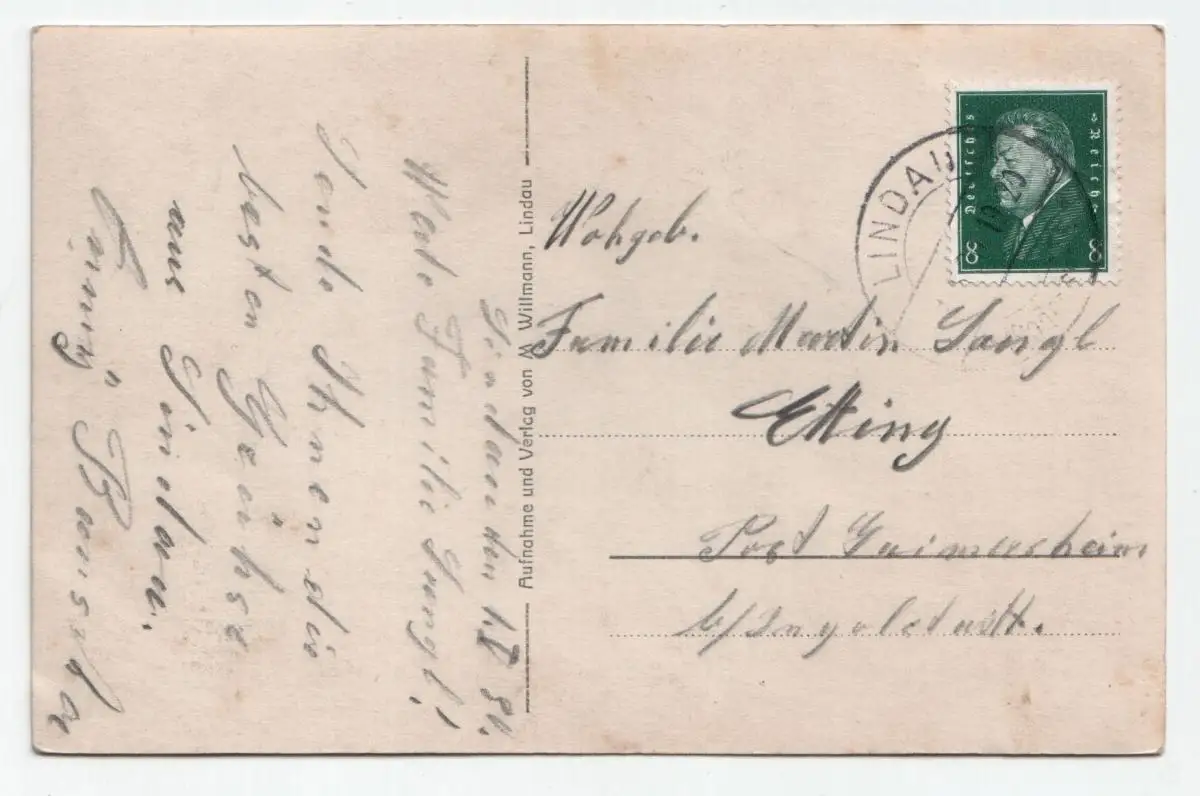 Lindau den 1.V 31.
Werte Familie Sangl!
Sende Ihnen die
besten Grüße
aus Lindau.
Fanny
Aufnahme und Verlag von M. Willmann, Lindau
Wohgeb.
Familie Martin Sangl
Etting
Post Gaimersheim
b/Ingolstadt.
Deutsches Reich
8 8
LINDAU